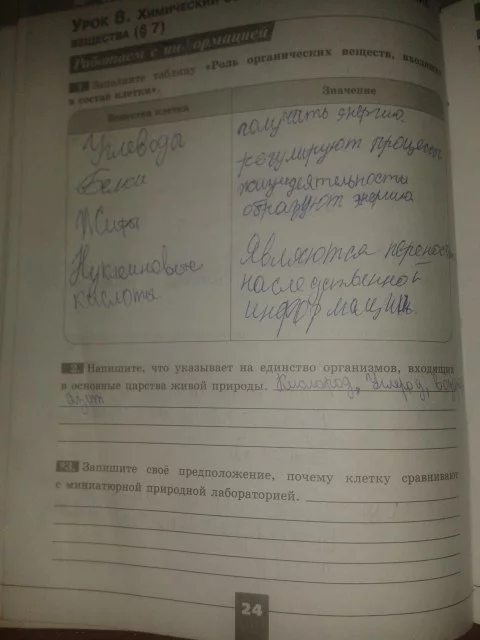 Урок 8. Химический
вещества (§ 7)
Работаем с информацией
1 Заполните таблицу «Роль органических веществ, входящих
в состав клетки».
Вещества клетки Значение
Углеводы получать энергию
Белки регулируют процессы
жизнедеятельности
Жиры образуют энергию
Нуклеиновые Являются
кислоты наследственной
информации
2. Напишите, что указывает на единство организмов, входящих
в основные царства живой природы. Кислород, Углерод,
азот
3. Запишите своё предположение, почему клетку сравнивают
с миниатюрной природной лабораторией.
24